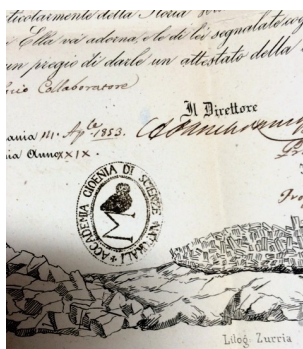 ticolarmente della Storia
Ella va adorna, e lo di lei segnalato
un pregio di darle un attestato della
Collaboratore
Il Direttore
ania 1853.
ia Anno XXIX.
ACCADEMIA GIOENIA DI SCIENZE NATURALI
Litog. Zurria